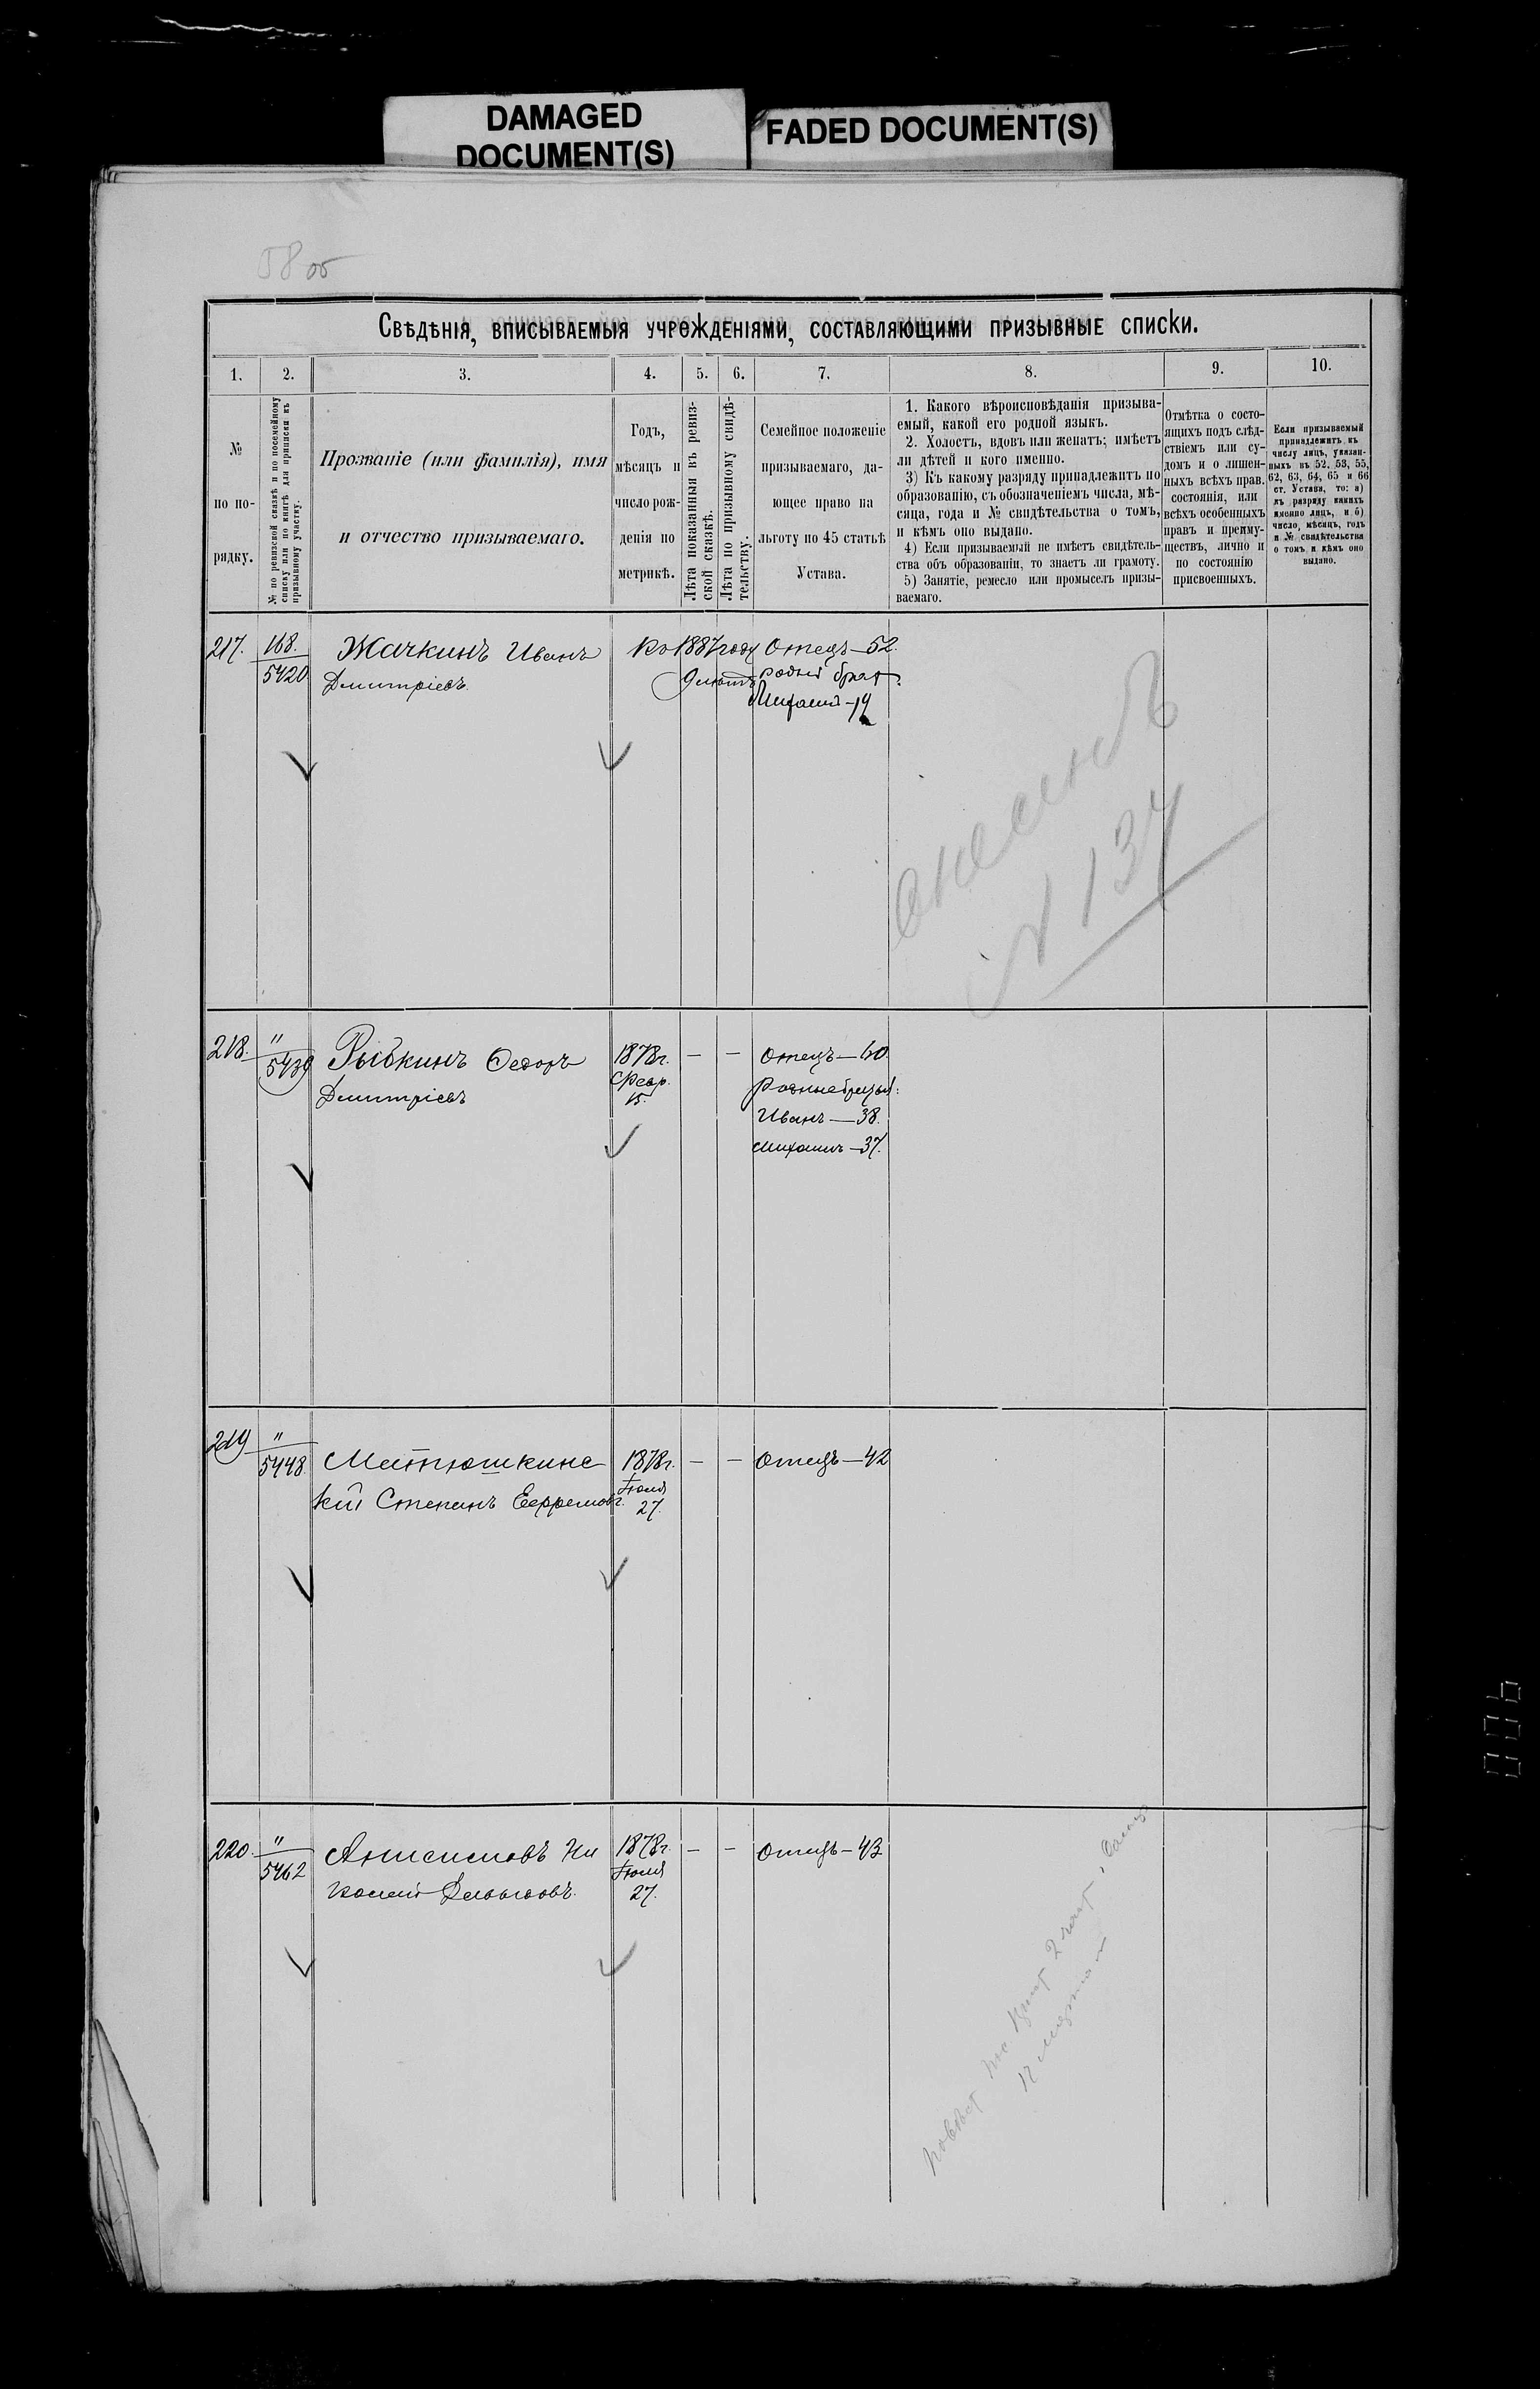 DAMAGED
DOCUMENT(S)
FADED DOCUMENT(S)
58 об
Свѣдѣнія, вписываемыя учрежденіями, составляющими призывные списки.
1. 2. 3. 4. 5. 6. 7. 8. 9. 10.
№
по по-
рядку.
№ по ревизской сказкѣ и по посемейному
списку или по книгѣ для приписки къ
призывному участку.
Прозваніе (или фамилія), имя
и отчество призываемаго.
Годъ,
мѣсяцъ и
число рож-
денія по
метрикѣ.
Лѣта показанныя въ ревиз-
ской сказкѣ.
Лѣта по призывному свидѣ-
тельству.
Семейное положеніе
призываемаго, да-
ющее право на
льготу по 45 статьѣ
Устава.
1. Какого вѣроисповѣданія призыва-
емый, какой его родной языкъ.
2. Холостъ, вдовъ или женатъ; имѣетъ
ли дѣтей и кого именно.
3) Къ какому разряду принадлежитъ по
образованію, съ обозначеніемъ числа, мѣ-
сяца, года и № свидѣтельства о томъ,
и кѣмъ оно выдано.
4) Если призываемый не имѣетъ свидѣтель-
ства объ образованіи, то знаетъ ли грамоту.
5) Занятіе, ремесло или промыселъ призы-
ваемаго.
Отмѣтка о состо-
ящихъ подъ слѣд-
ствіемъ или су-
домъ и о лишен-
ныхъ всѣхъ прав.
состоянія, или
всѣхъ особенныхъ
правъ и преиму-
ществъ, лично и
по состоянію
присвоенныхъ.
Если призываемый
принадлежитъ къ
числу лицъ, указан-
ныхъ въ 52, 53, 55,
62, 63, 64, 65 и 66
ст. Устава, то: а)
къ разряду какихъ
именно лицъ, и б)
число, мѣсяцъ, годъ
и № свидѣтельства
о томъ и кѣмъ оно
выдано.
217. 168. Жачкинъ Иванъ Къ 1887 году Отецъ—52.
5420 Дмитріевъ. 9 лѣтъ родной брат:
19
№ 137
218. " Рыбкинъ Федоръ 1878г. — — Отецъ—60.
5439 Дмитріевъ Февр. Родные братья:
15. Иванъ—38.
Михаилъ—37.
219 " Матюшкинс- 1878г. — — Отецъ—42
5448. кій Степанъ Ефремовъ. Іюля
27.
220. " Анисимовъ Ни 1878г. — — Отецъ—43
5462 колай Давыдовъ. Іюля
27.
006